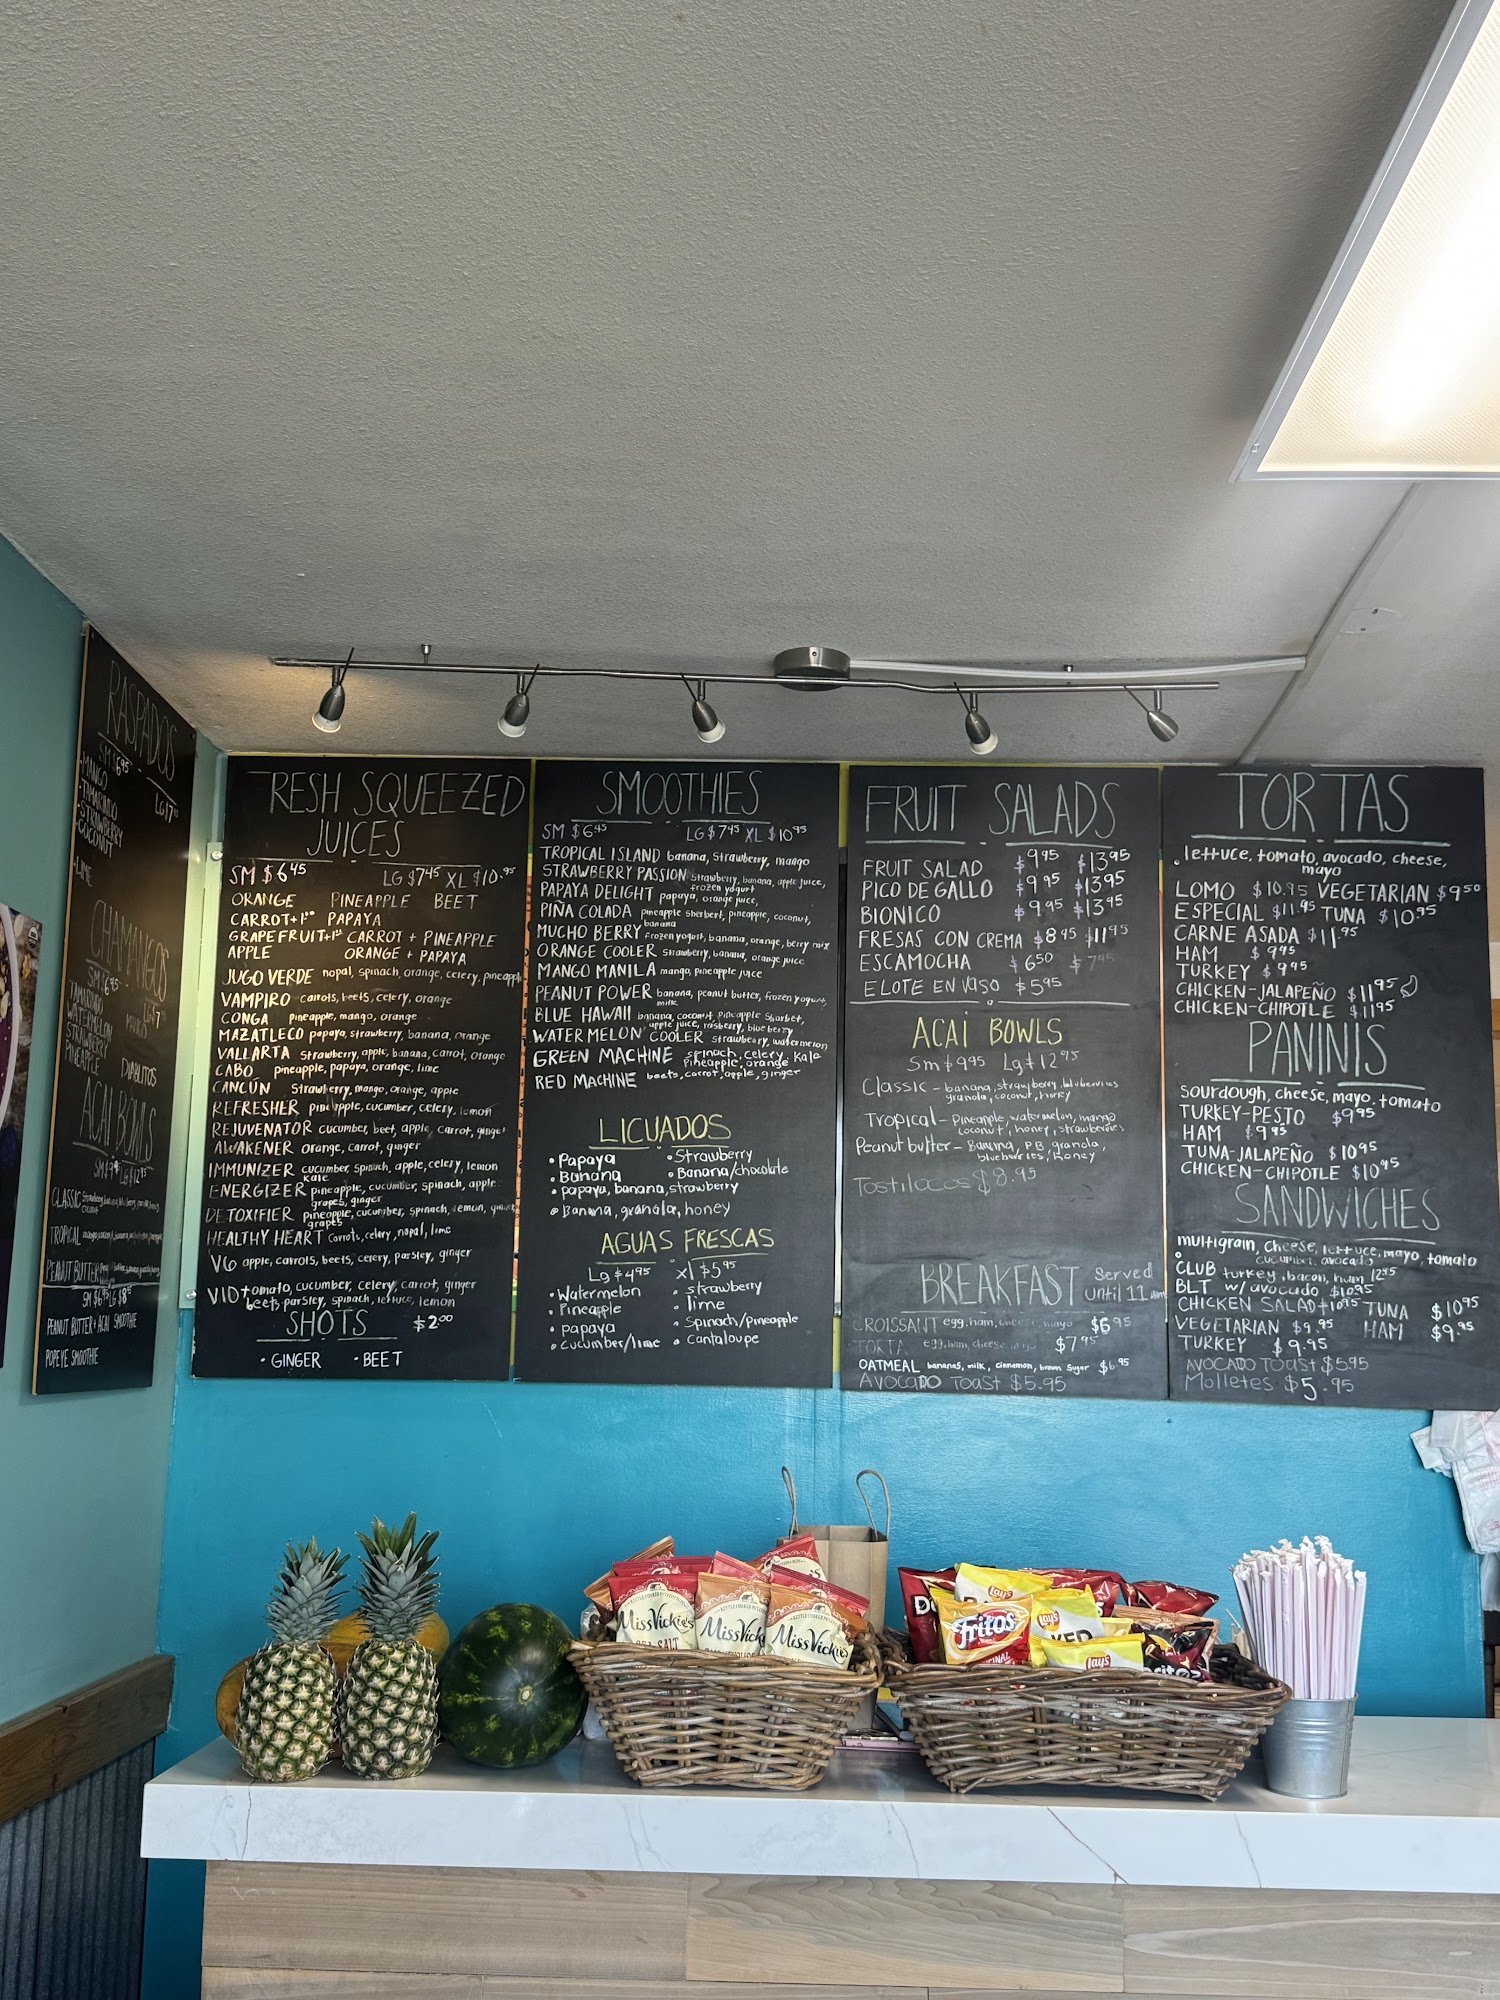 RASPADOS
SM $6.95
LG $7.95
·MANGO
·TAMARINDO
·STRAWBERRY
·COCONUT
·LIME
CHAMANGOS
SM $6.45
LG $7
TAMARINDO
WATERMELON MANGO
STRAWBERRY
PINEAPPLE DIABLITOS
ACAI BOWLS
SM $9.95 LG $12.95
CLASSIC
TROPICAL
PEANUT BUTTER
SM $6.95 LG $8
PEANUT BUTTER + ACAI SMOOTHIE
POPEYE SMOOTHIE
FRESH SQUEEZED
JUICES
SM $6.45 LG $7.45 XL $10.95
ORANGE PINEAPPLE BEET
CARROT+1.00 PAPAYA
GRAPEFRUIT+1.00 CARROT + PINEAPPLE
APPLE ORANGE + PAPAYA
JUGO VERDE nopal, spinach, orange, celery, pineapple
VAMPIRO carrots, beets, celery, orange
CONGA pineapple, mango, orange
MAZATLECO papaya, strawberry, banana, orange
VALLARTA strawberry, apple, banana, carrot, orange
CABO pineapple, papaya, orange, lime
CANCÚN Strawberry, mango, orange, apple
REFRESHER pineapple, cucumber, celery, lemon
REJUVENATOR cucumber, beet, apple, carrot, ginger
AWAKENER orange, carrot, ginger
IMMUNIZER cucumber, spinach, apple, celery, lemon
kale
ENERGIZER pineapple, cucumber, spinach, apple
grapes, ginger
DETOXIFIER pineapple, cucumber, spinach, lemon,
grapes
HEALTHY HEART carrots, celery, nopal, lime
V6 apple, carrots, beets, celery, parsley, ginger
V10 tomato, cucumber, celery, carrot, ginger
beets, parsley, spinach, lettuce, lemon
SHOTS $2.00
· GINGER · BEET
SMOOTHIES
SM $6.45 LG $7.45 XL $10.95
TROPICAL ISLAND banana, strawberry, mango
STRAWBERRY PASSION strawberry, banana, apple juice,
frozen yogurt
PAPAYA DELIGHT papaya, orange juice,
PIÑA COLADA pineapple sherbert, pineapple, coconut,
banana
MUCHO BERRY frozen yogurt, banana, orange, berry mix
ORANGE COOLER strawberry, banana, orange juice
MANGO MANILA mango, pineapple juice
PEANUT POWER banana, peanut butter, frozen yogurt,
milk
BLUE HAWAII banana, coconut, pineapple sherbet,
apple juice, rasberry, blueberry
WATERMELON COOLER strawberry, watermelon
GREEN MACHINE spinach, celery, kale
pineapple, orange
RED MACHINE beets, carrot, apple, ginger
LICUADOS
• Papaya • Strawberry
• Banana • Banana/chocolate
• papaya, banana, strawberry
• Banana, granola, honey
AGUAS FRESCAS
Lg $4.95 xl $5.95
• Watermelon • strawberry
• Pineapple • lime
• papaya • Spinach/pineapple
• cucumber/lime • Cantaloupe
FRUIT SALADS
FRUIT SALAD $9.95 $13.95
PICO DE GALLO $9.95 $13.95
BIONICO $9.45 $13.45
FRESAS CON CREMA $8.95 $11.95
ESCAMOCHA $6.50 $7.95
ELOTE EN VASO $5.95
ACAI BOWLS
Sm $9.95 Lg $12.95
Classic - banana, strawberry, blueberries
granola, coconut, honey
Tropical - Pineapple, watermelon, mango
coconut, honey, strawberries
Peanut butter - Banana, P.B, granola,
blueberries, honey
Tostilocos $8.95
BREAKFAST Served
until 11 am
CROISSANT egg, ham, cheese, mayo $6.95
TORTA egg, ham, cheese, mayo $7.95
OATMEAL bananas, milk, cinnamon, brown sugar $6.95
AVOCADO Toast $5.95
TORTAS
lettuce, tomato, avocado, cheese,
mayo
LOMO $10.95 VEGETARIAN $9.50
ESPECIAL $11.95 TUNA $10.95
CARNE ASADA $11.95
HAM $9.95
TURKEY $9.95
CHICKEN-JALAPEÑO $11.95
CHICKEN-CHIPOTLE $11.95
PANINIS
Sourdough, cheese, mayo, tomato
TURKEY-PESTO $9.95
HAM $9.95
TUNA-JALAPEÑO $10.95
CHICKEN-CHIPOTLE $10.95
SANDWICHES
multigrain, cheese, lettuce, mayo, tomato
cucumber, avocado
CLUB turkey, bacon, ham 12.95
BLT w/ avocado $10.95
CHICKEN SALAD $10.95 TUNA $10.95
VEGETARIAN $9.95 HAM $9.95
TURKEY $9.95
AVOCADO TOAST $5.95
Molletes $5.95
Miss Vickie's
Miss Vickie's
Lay's
Fritos
Lay's
Lay's